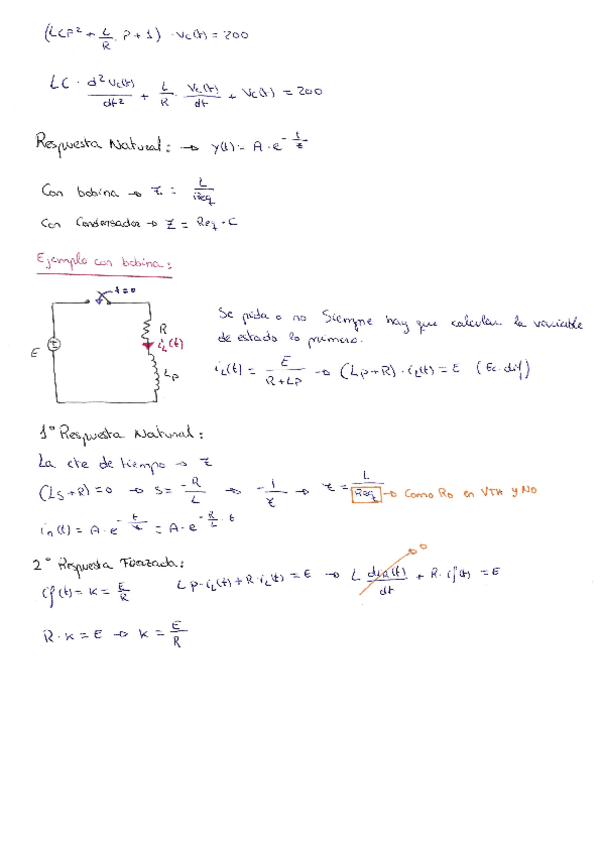 (LCp² + L/R · p + 1) · Vc(t) = 200
LC · d²Vc(t)/dt² + L/R · Vc(t)/dt + Vc(t) = 200
Respuesta Natural: → y(t) = A · e^(-t/τ)
Con bobina → τ = L/Req
Con Condensador → τ = Req · C
Ejemplo con bobina:
t=0
R
iL(t)
E
Lp
Se pida o no Siempre hay que calcular la variable
de estado lo primero.
iL(t) = E/(R+Lp) → (Lp+R) · iL(t) = E (Ec. dif)
1º Respuesta Natural:
La cte de tiempo → τ
(Ls+R) = 0 → s = -R/L → -1/τ → τ = L/Req → Como Ro en VTH y NO
in(t) = A · e^(-t/τ) = A · e^(-R/L · t)
2º Respuesta Forzada:
if(t) = K = E/R Lp·iL(t) + R·iL(t) = E → L diL(t)/dt + R · if(t) = E
0
R · K = E → K = E/R